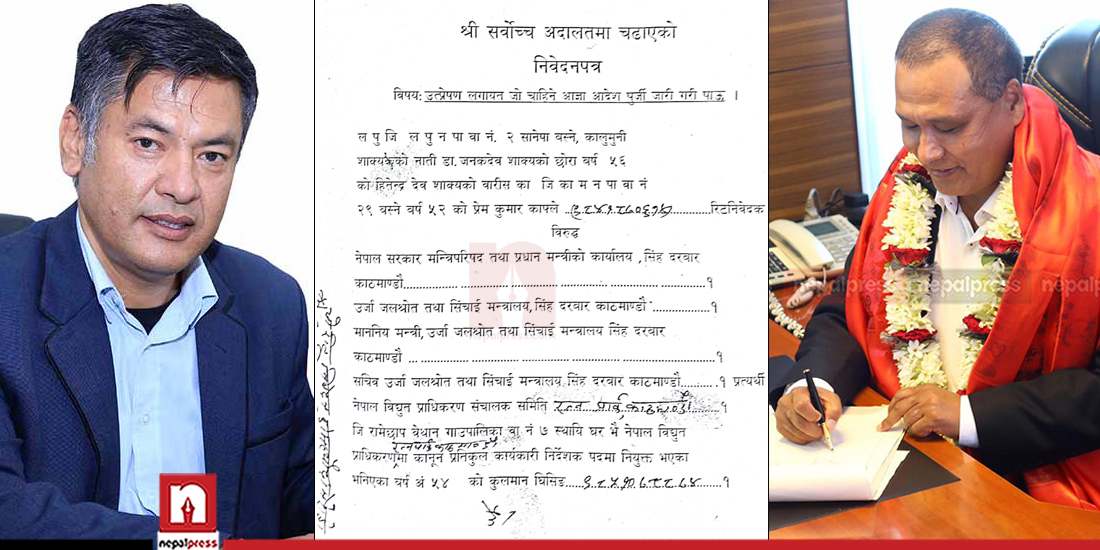 श्री सर्वोच्च अदालतमा चढाएको
निवेदनपत्र
विषय: उत्प्रेषण लगायत जो चाहिने आज्ञा आदेश पुर्जी जारी गरी पाऊ ।
ल पु जि ल पु न पा वा नं. २ सानेपा बस्ने, कालुमुनी
शाक्यकेको नाती डा.जनकदेव शाक्यको छोरा बर्ष ५६
को हितेन्द्र देव शाक्यको वारीस का जि का म न पा वा नं
२९ बस्ने बर्ष ५२ को प्रेम कुमार काफ्ले रिटनिवेदक
विरुद्ध
नेपाल सरकार मन्त्रिपरिषद तथा प्रधान मन्त्रीको कार्यालय ,सिंह दरबार
काठमाण्डौ १
उर्जा जलश्रोत तथा सिंचाई मन्त्रालय,सिंह दरबार काठमाण्डौ १
माननिय मन्त्री,उर्जा जलश्रोत तथा सिंचाई मन्त्रालय सिंह दरबार
काठमाण्डौ १
सचिव उर्जा जलश्रोत तथा सिंचाई मन्त्रालय,सिंह दरबार काठमाण्डौ १ प्रत्यर्थी
नेपाल विघुत प्राधिकरण संचालक समिति १
जि रामेछाप बेथान गाउपालिका वा नं ७ स्थायि घर भै नेपाल विघुत
प्राधिकरणमा कानून प्रतिकुल कार्यकारी निर्देशक पदमा नियुक्त भएका
भनिएका बर्ष अं ५४ को कुलमान घिसिङ १
n
nepalpress
nepalpress